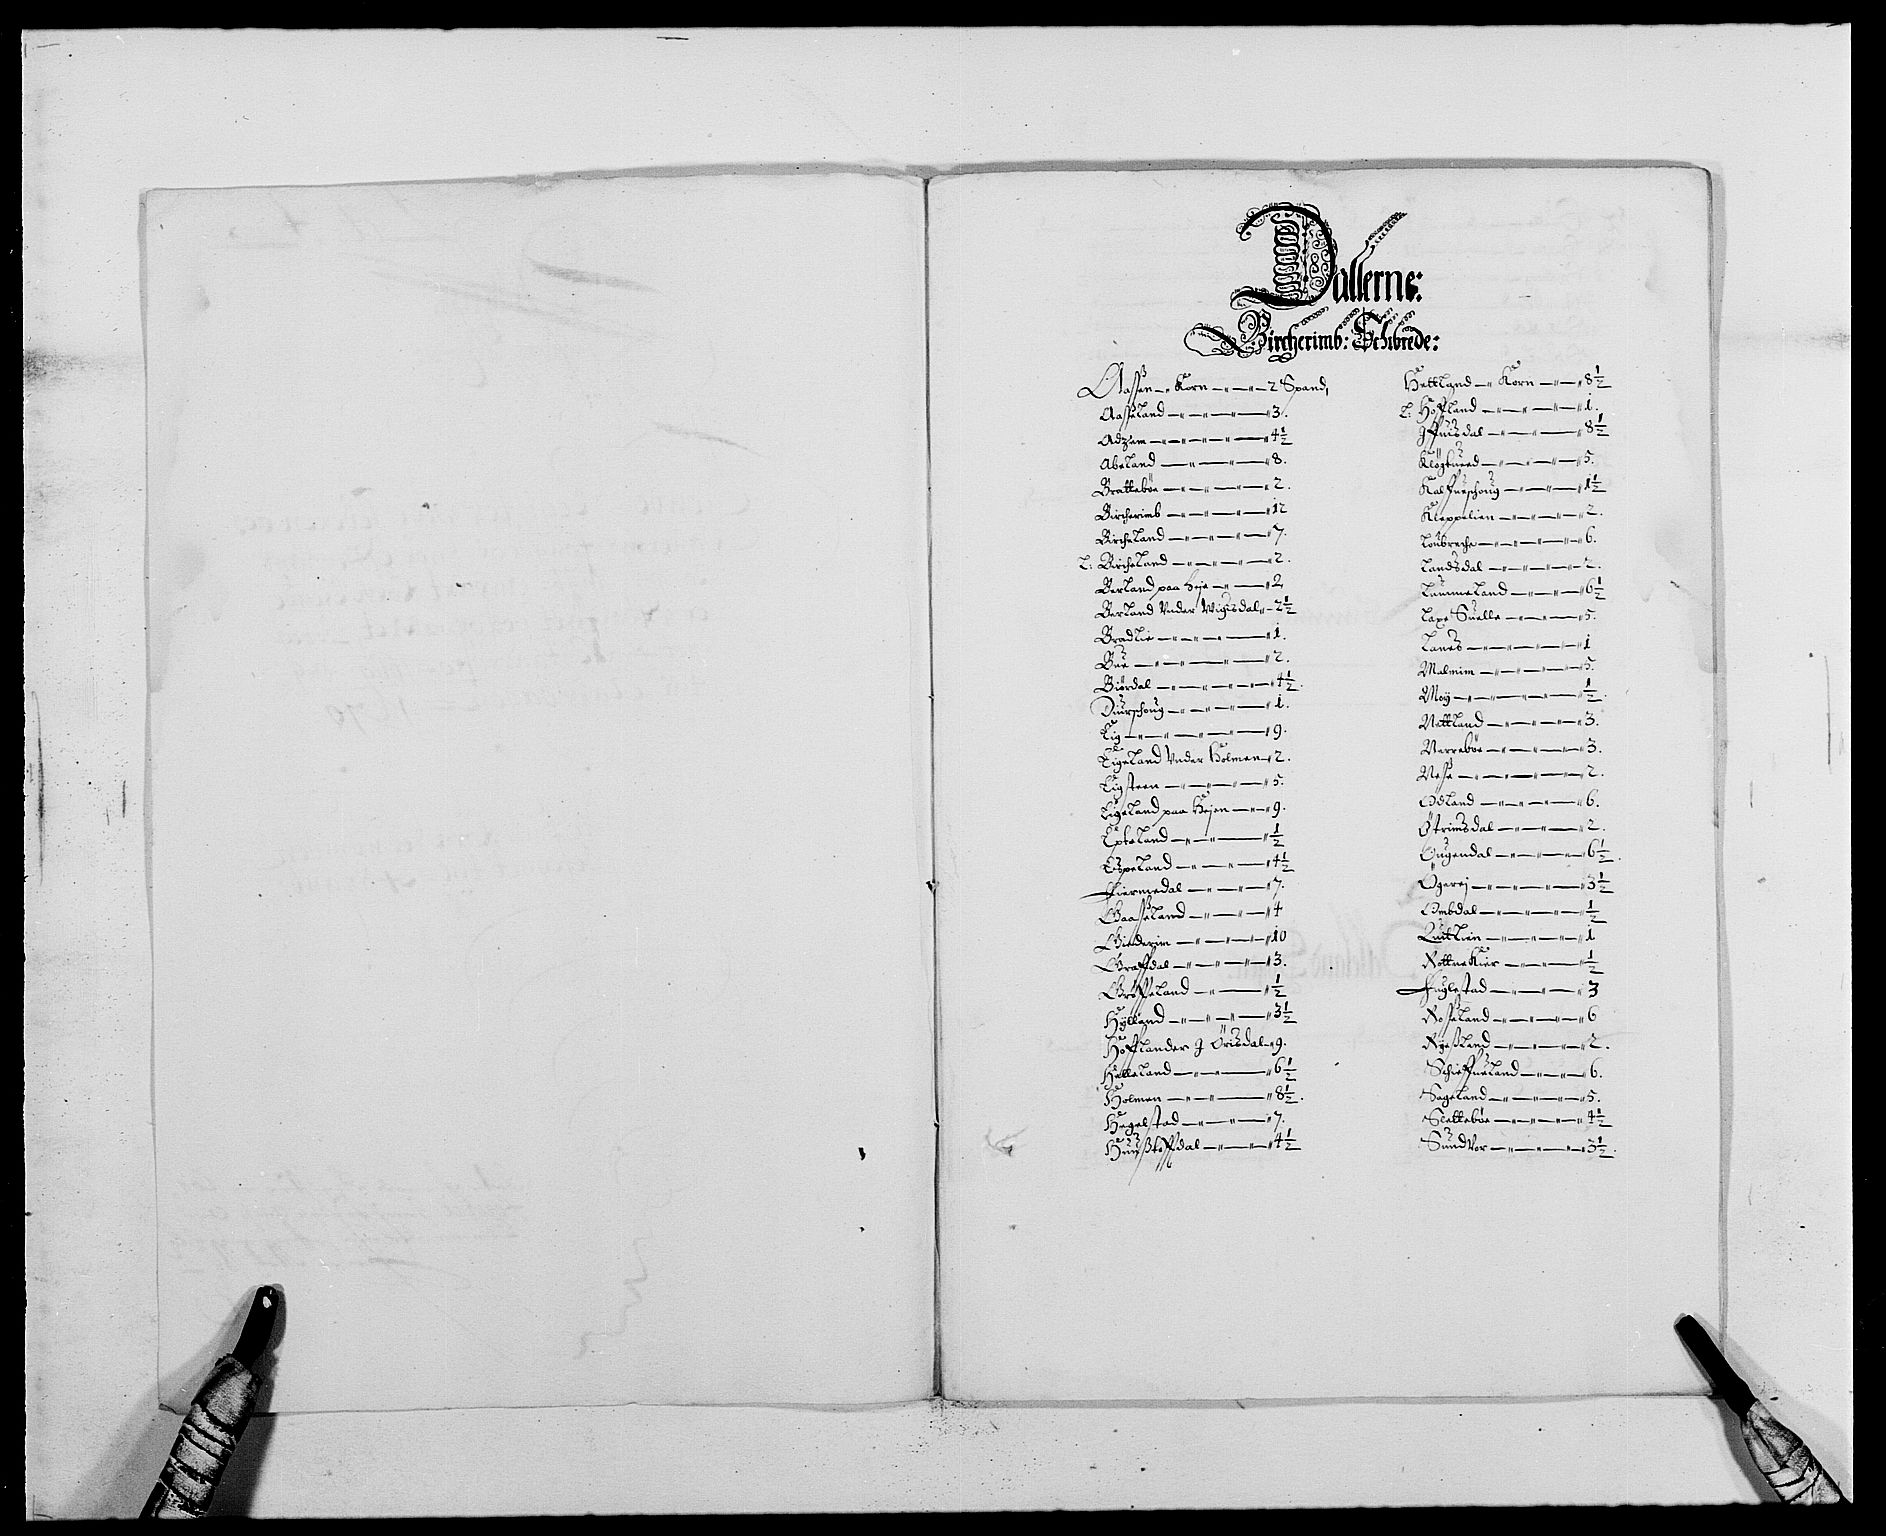 Dallerne:
Bircherimb: Schibrede:
Aassen „ Korn „ „ 2 Spand,
Aasseland „ „ „ 3.
Adzem „ „ „ „ 4½
Abeland „ „ 8.
Brattebøe „ „ „ 2.
Bircherimb „ „ „ 12
Bircheland „ „ „ 7.
L: Bircheland „ „ „ 2.
Berland paa Heje „ „ 2
Berland Vnder Wigisdal „ 2½
Bradlie „ „ „ 1.
Bue „ „ „ 2.
Biørdal „ „ „ „ 4½.
Diurschoug „ „ „ 1.
Eig „ „ „ „ 9.
Eigeland Vnder Holmen „ 2.
Eigsteen „ „ „ 5.
Eigeland paa Hejen „ „ 9.
Epteland „ „ „ ½
Espeland „ „ „ 4½
Fiermedal „ „ „ 7.
Gaasseland „ „ „ 4
Giederim „ „ „ 10
Graffdal „ „ „ 3.
Grøffeland „ „ ½
Hÿlland „ „ „ 3½
Høfflander J Ørisdal „ 9.
Helleland „ „ „ 6½
Holmen „ „ „ 8½.
Hegelstad „ „ „ 7.
Huußtoffdal „ „ 4½
Hettland „ Korn „ „ 8½
L: Høffland „ „ „ 1.
Jffuisdal „ „ „ 8½
Kløgtued „ „ „ 5.
Kalffuschoug „ „ „ 1½
Kleppelien „ „ „ 2.
Loubreche „ „ „ 6.
Landsdal „ „ „ 2.
Lammeland „ „ „ 6½
Laxe Suelle „ „ „ 5.
Lanes „ „ „ 1
Malmim „ „ „ 5.
Moÿ „ „ „ „ ½.
Nettland „ „ „ 3.
Nerrebøe „ „ „ 3.
Nese „ „ „ 2.
Odland „ „ „ 6.
Ørimsdal „ „ „ 2.
Ougendal „ „ „ 6½.
Øgerej „ „ „ 3½
Ombdal „ „ „ ½
Quitlien „ „ „ 1
Rottnekier „ „ „ ½
Fuglestad „ „ „ 3
Rosseland „ „ „ 6
Rÿeßland „ „ „ 2.
Schieffueland „ „ 6.
Sageland „ „ „ 5.
Slettebøe „ „ „ 4½
Sundvor „ „ „ 3½.